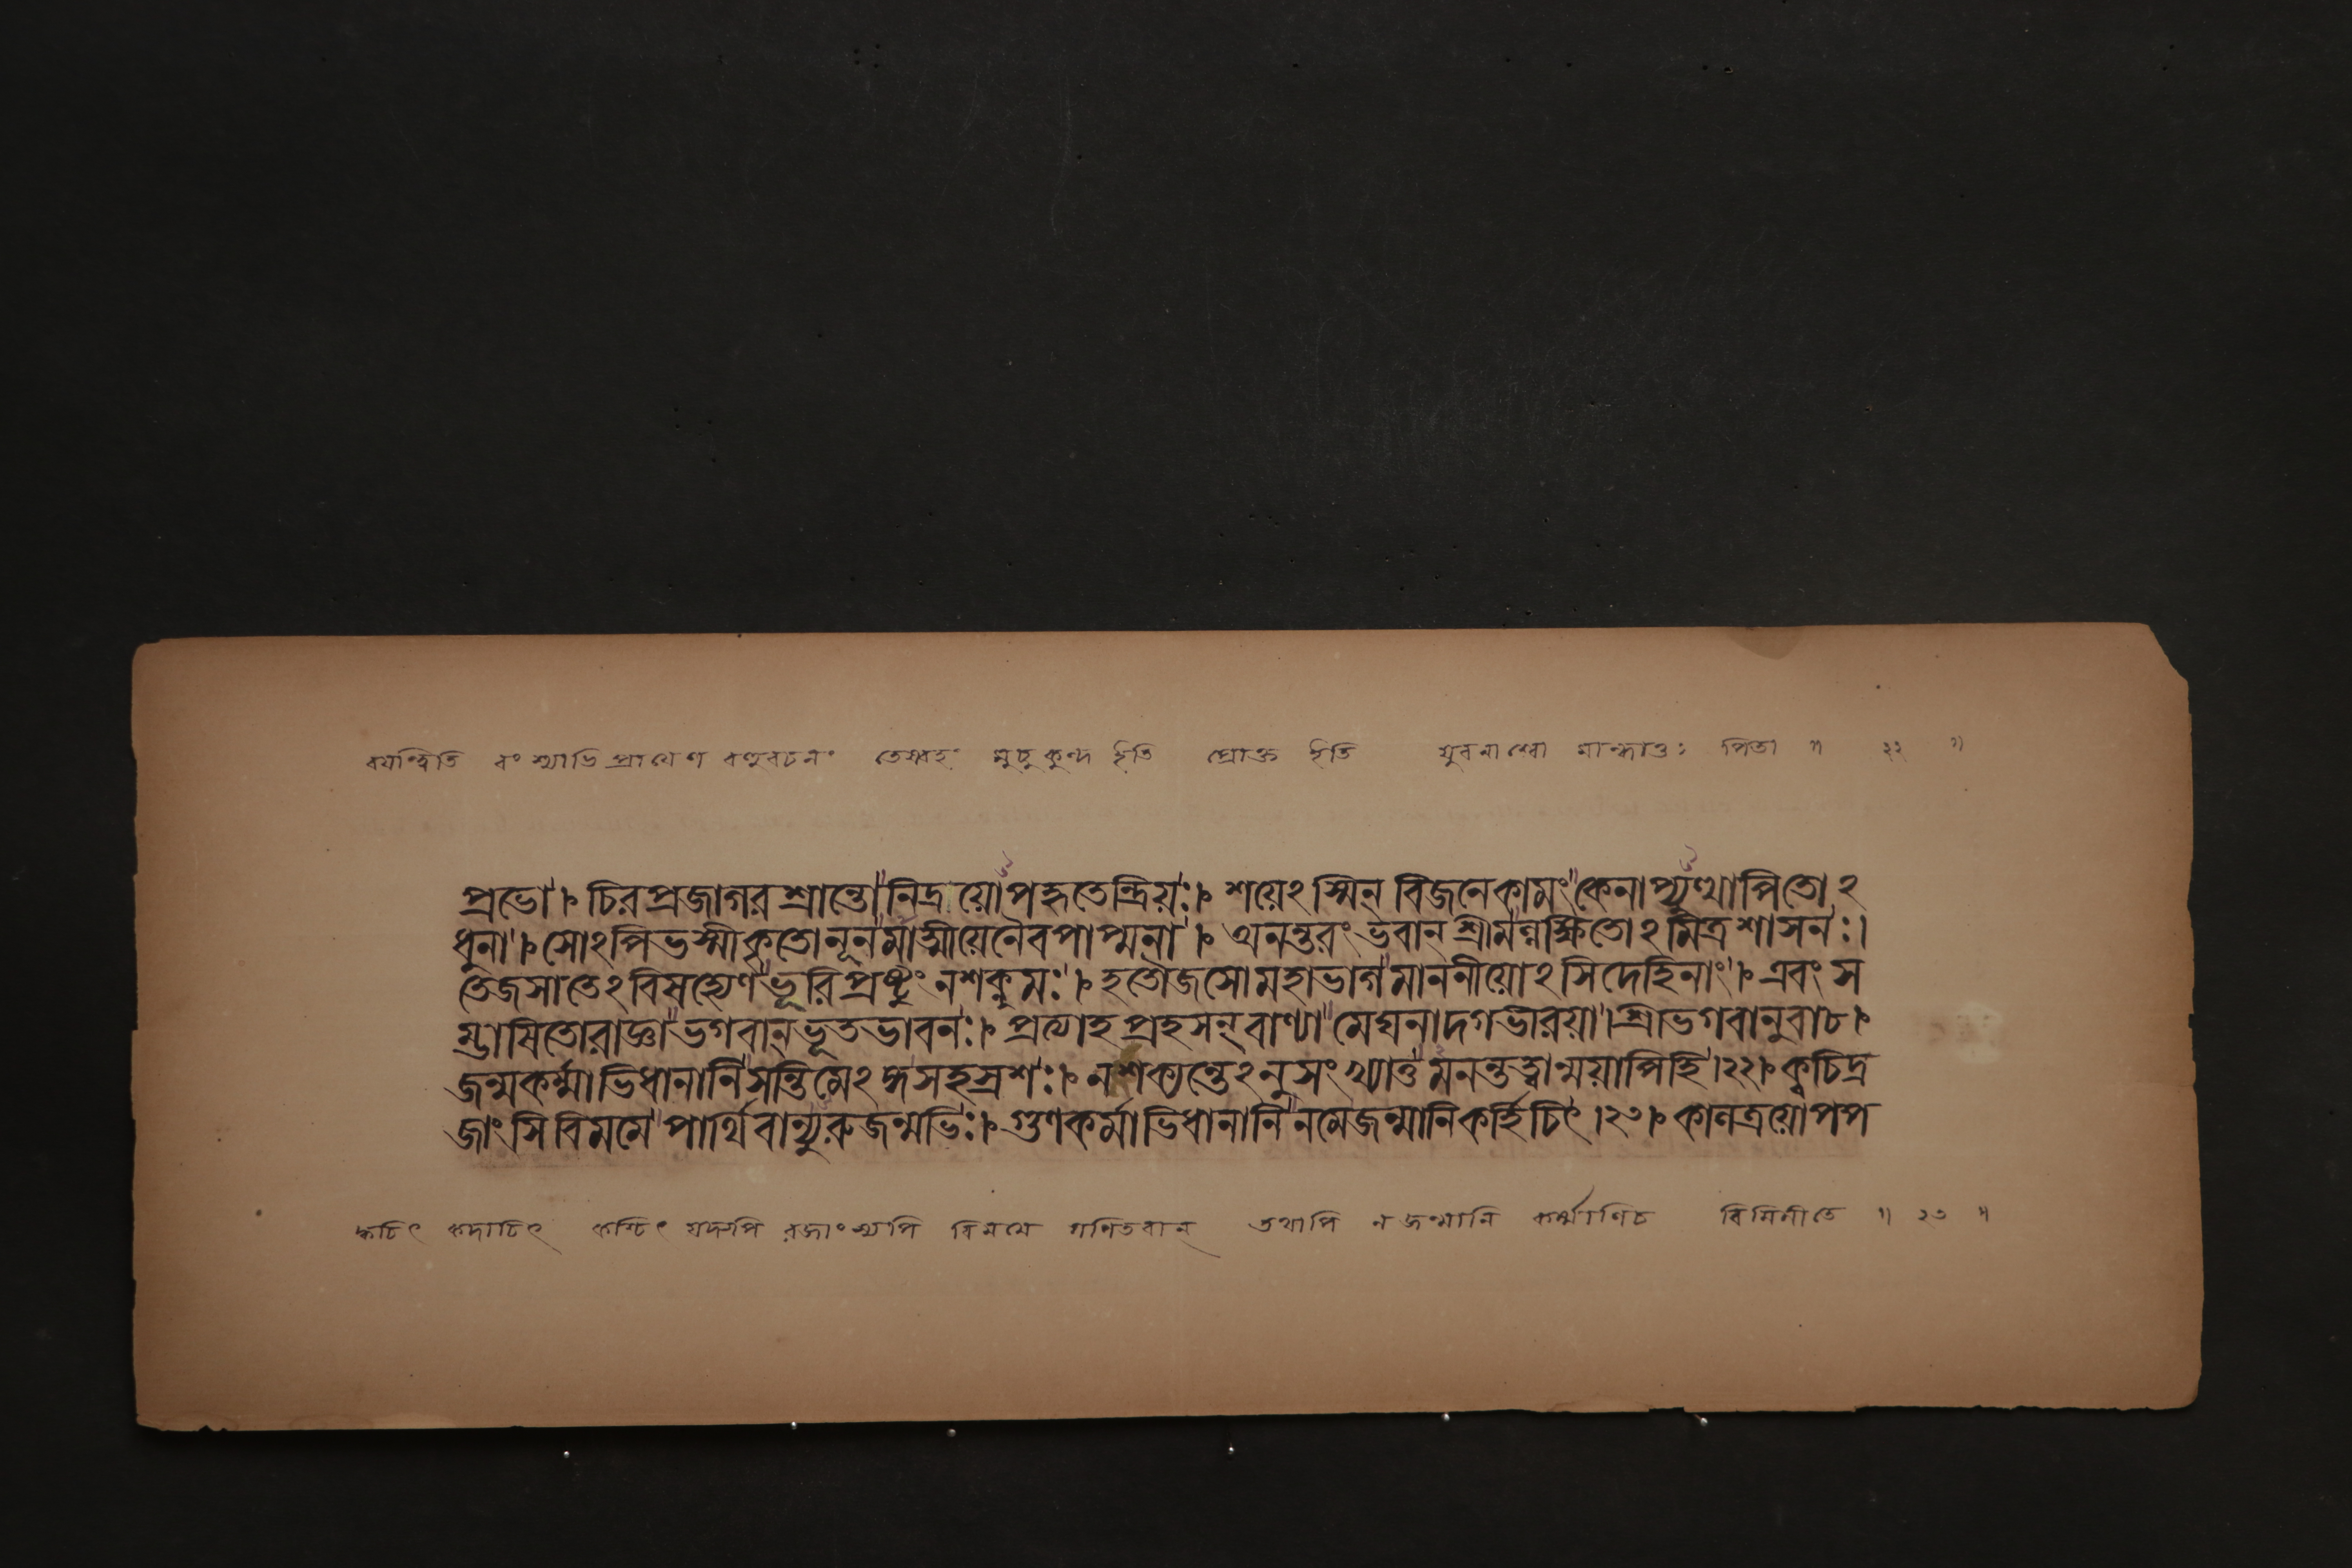 বয়ন্ত্বিতি বংশ্যাভিপ্রায়েণ বহুবচনং তেষ্বহং মুচুকুন্দ ইতি প্রোক্ত ইতি যুবনাশ্বো মান্ধাতুঃ পিতা ॥ ২২ ॥
প্রভো । চিরপ্রজাগরশ্রান্তো নিদ্রয়োপহৃতেন্দ্রিয়ঃ । শয়েঽস্মিন্ বিজনেকামং কেনাপ্যুত্থাপিতোঽ
ধুনা । সোঽপিভস্মীকৃতোনূনমাত্মীয়েনৈবপাপ্মনা । অনন্তরং ভবান্ শ্রীমন্নক্ষিতোঽমিত্রশাসনঃ ।
তেজসাতেঽবিসহ্যেণ ভূরিপ্রষ্টুং নশক্নুমঃ । হতৌজসোমহাভাগ মাননীয়োঽসিদেহিনাং । এবং স
ম্ভাষিতোরাজ্ঞা ভগবান্ ভূতভাবনঃ । প্রত্যাহ প্রহসন্ বাণ্যা মেঘনাদগভীরয়া । শ্রীভগবানুবাচ ।
জন্মকর্ম্মাভিধানানি সন্তিমেঽঙ্গসহস্রশঃ । নশক্যন্তেঽনুসংখ্যাতুমনন্তত্বান্ময়াপিহি । ২২ । ক্বচিদ্র
জাংসি বিমমে পার্থিবান্যুরুজন্মভিঃ । গুণকর্মাভিধানানি নমেজন্মানিকর্হিচিৎ । ২৩ । কালত্রয়োপপ
ক্বচিৎ কদাচিৎ কশ্চিৎ যদ্যপি রজাংস্যপি বিমমে গণিতবান্ তথাপি ন জন্মানি কর্ম্মাণিচ বিমিমীতে ॥ ২৩ ॥